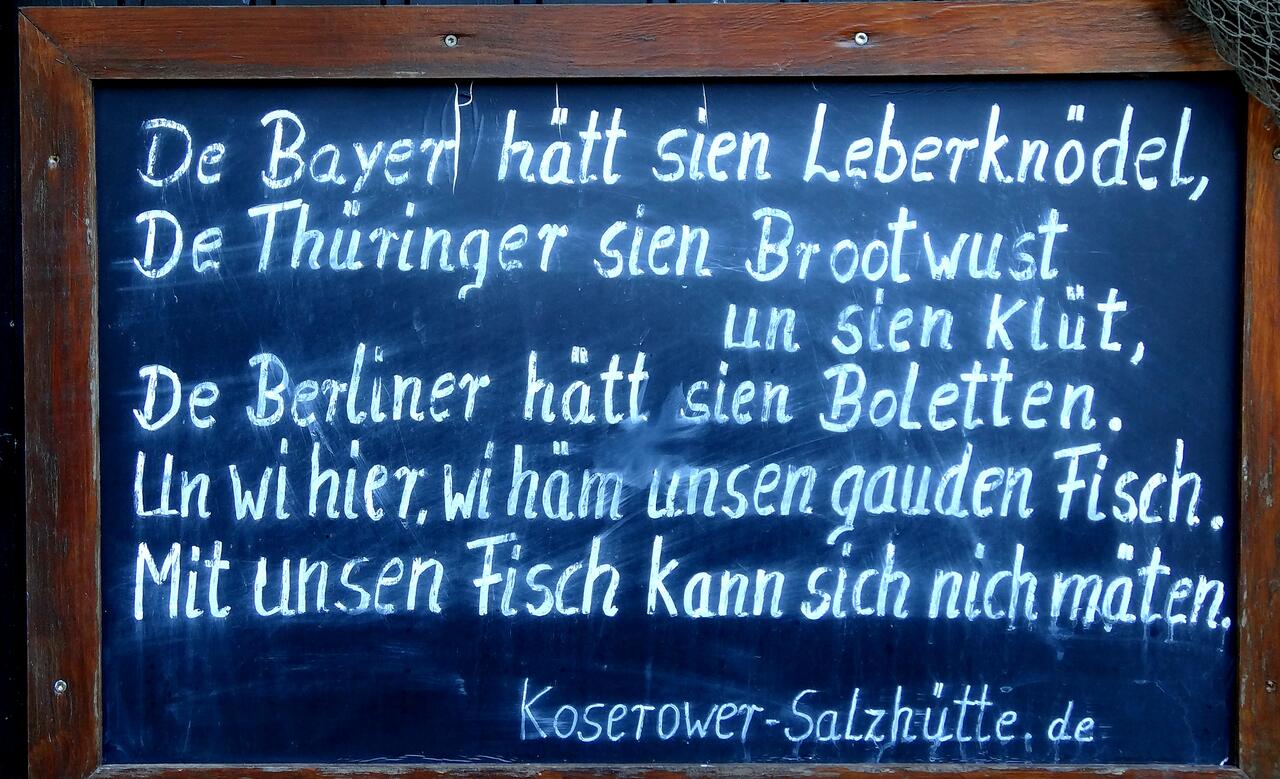 De Bayer hätt sien Leberknödel,
De Thüringer sien Brootwust
un sien Klüt,
De Berliner hätt sien Boletten.
Un wi hier, wi häm unsen gauden Fisch.
Mit unsen Fisch kann sich nich mäten.
Koserower-Salzhütte.de